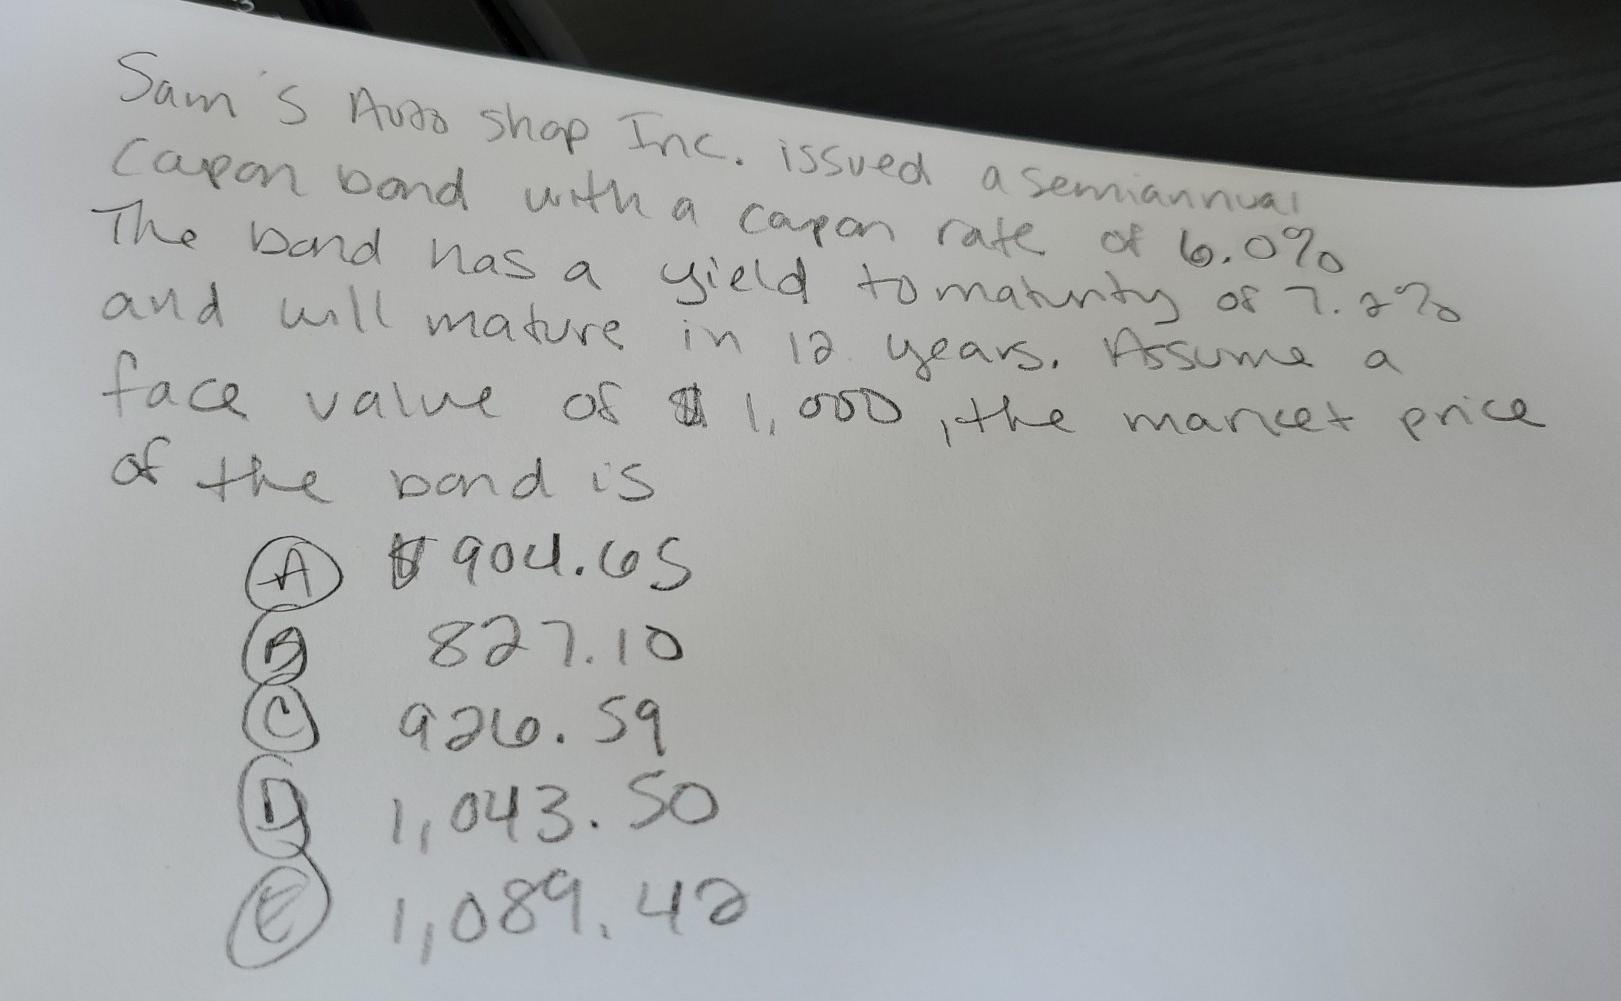 Sam's Auto Shop Inc. issued a semiannual
Capon bond with a capon rate of 6.0%
The bond has a yield to maturity of 7.2%
and will mature in 12 years. Assume a
face value of $1,000, the market price
of the bond is
A $904.65
B 827.10
C 926.59
D 1,043.50
E 1,089.42